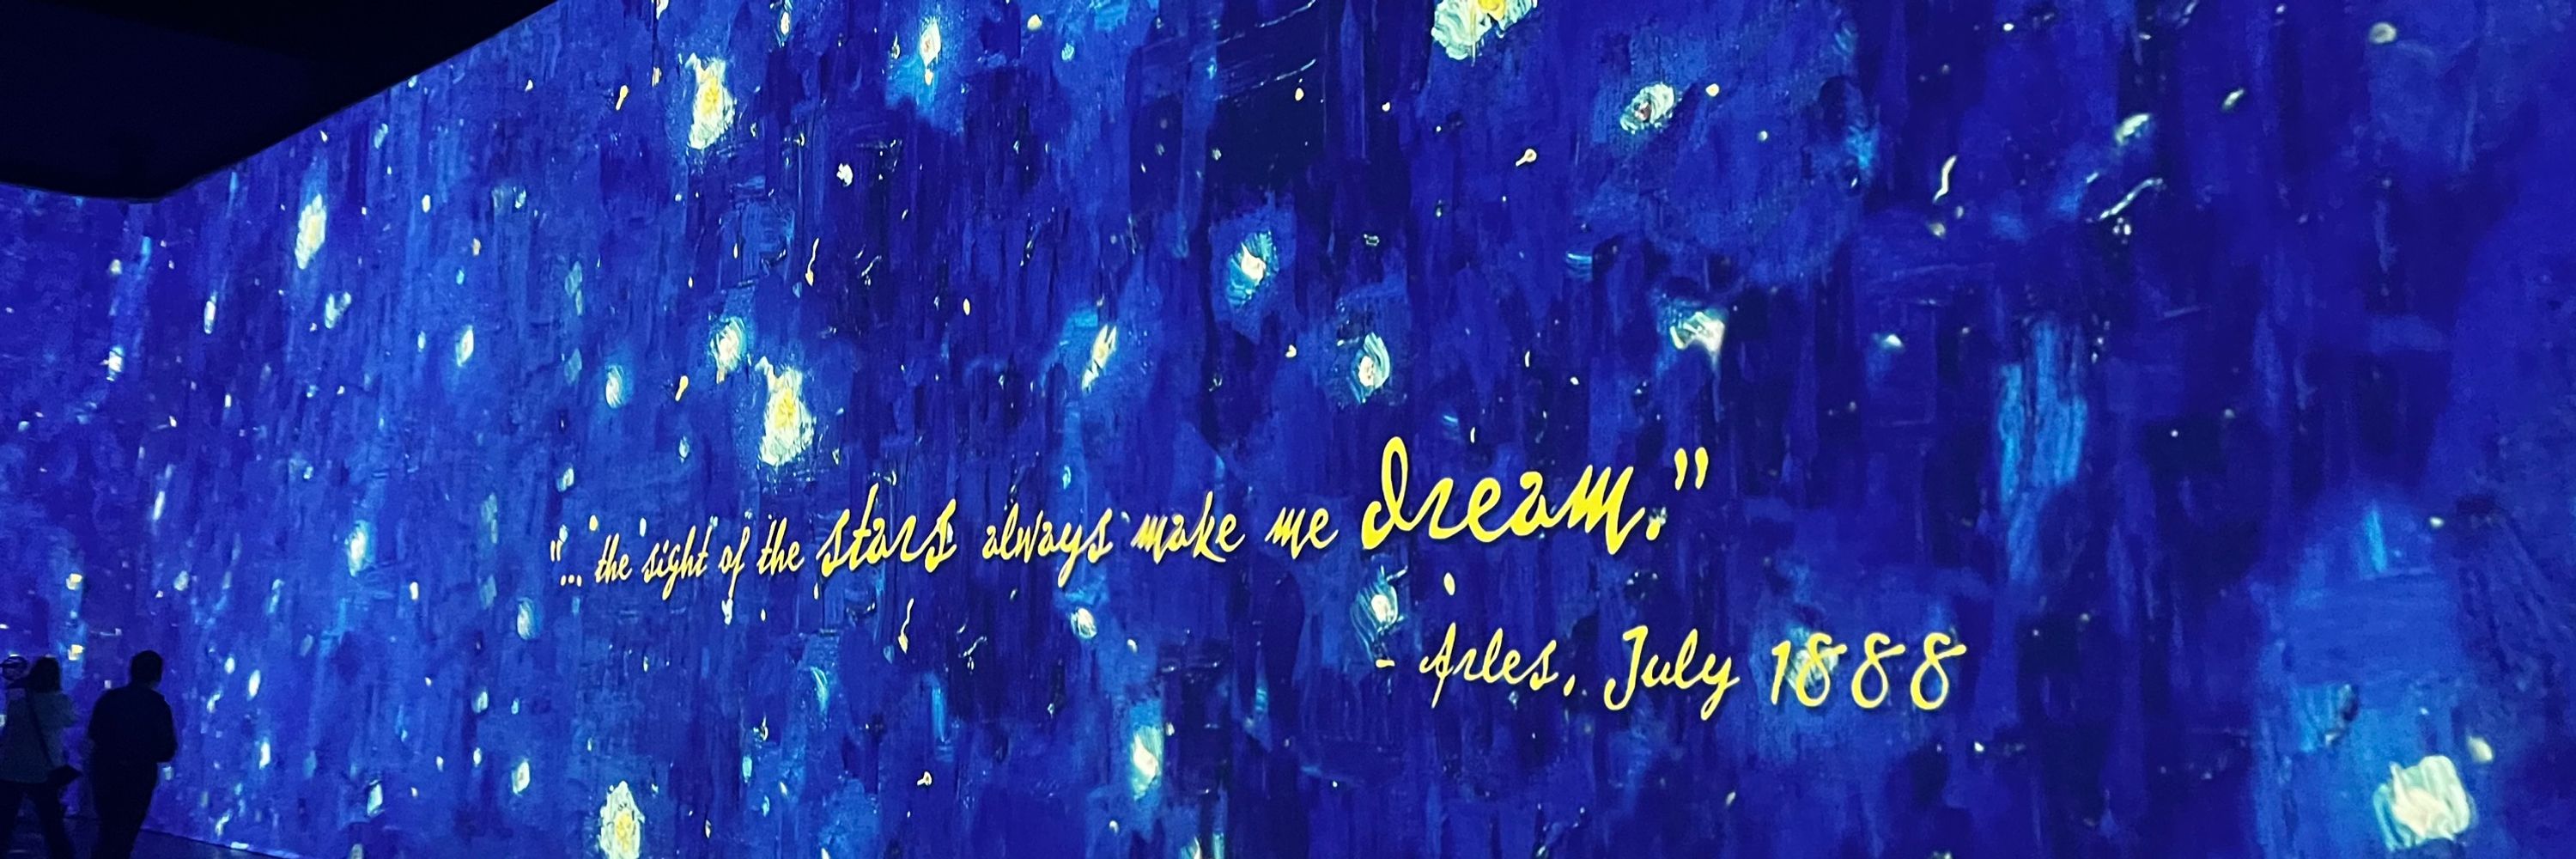 "... the sight of the stars always make me dream."
- Arles, July 1888